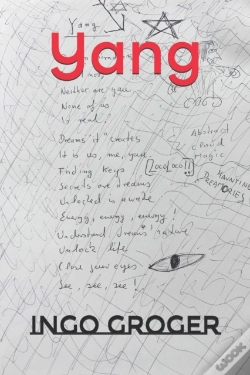 Yang
Yang
not
Neither are you
None of us
Is real!
Dreams "it" creates
It is us, me, you
Finding keys
Secrets are dreams
Unlocked is awake
Energy, energy, energy!
Understand, dreams nature
Unlock life
Close your eyes
See, see, see!
Abstract
cloud
magic
HAUNTING
INGO GROGER
wook